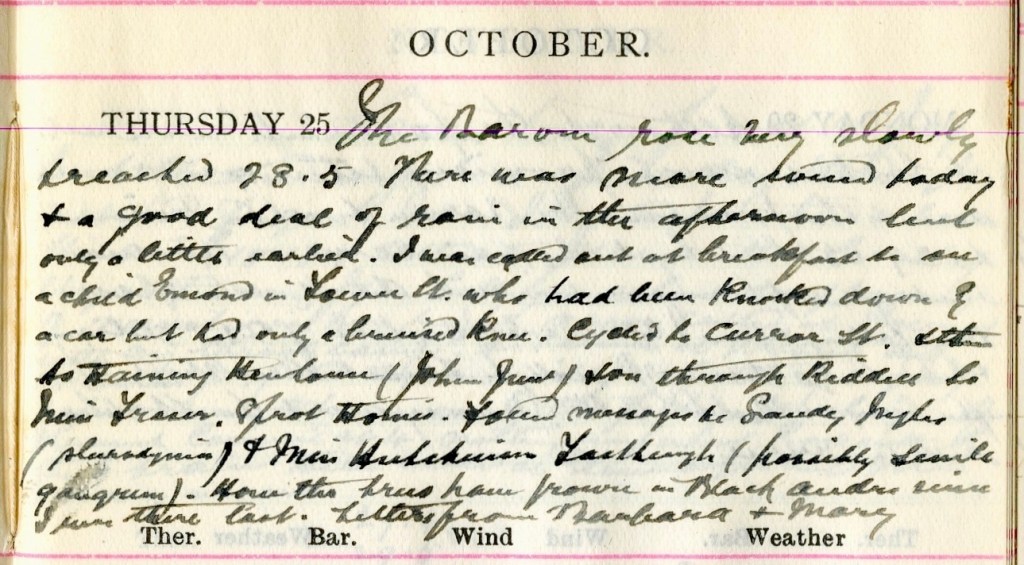 OCTOBER.
THURSDAY 25 The Barom rose very slowly
& reached 28.5. There was more wind today
& a good deal of rain in the afternoon but
only a little earlier. I was called out at breakfast to see
a child Emond in Tower St. who had been knocked down by
a car but had only a bruised knee. Cycled to Curror St. & then
to Haining (John) & on through Riddell to
Miss Fraser. Home. Found messages to Sandy Inglis
(pleurodynia) & Miss Hutchison (possibly senile
gangrene). How the trees have grown in Black Andro since
I was there last. Letters from Barbara & Mary
Ther. Bar. Wind Weather